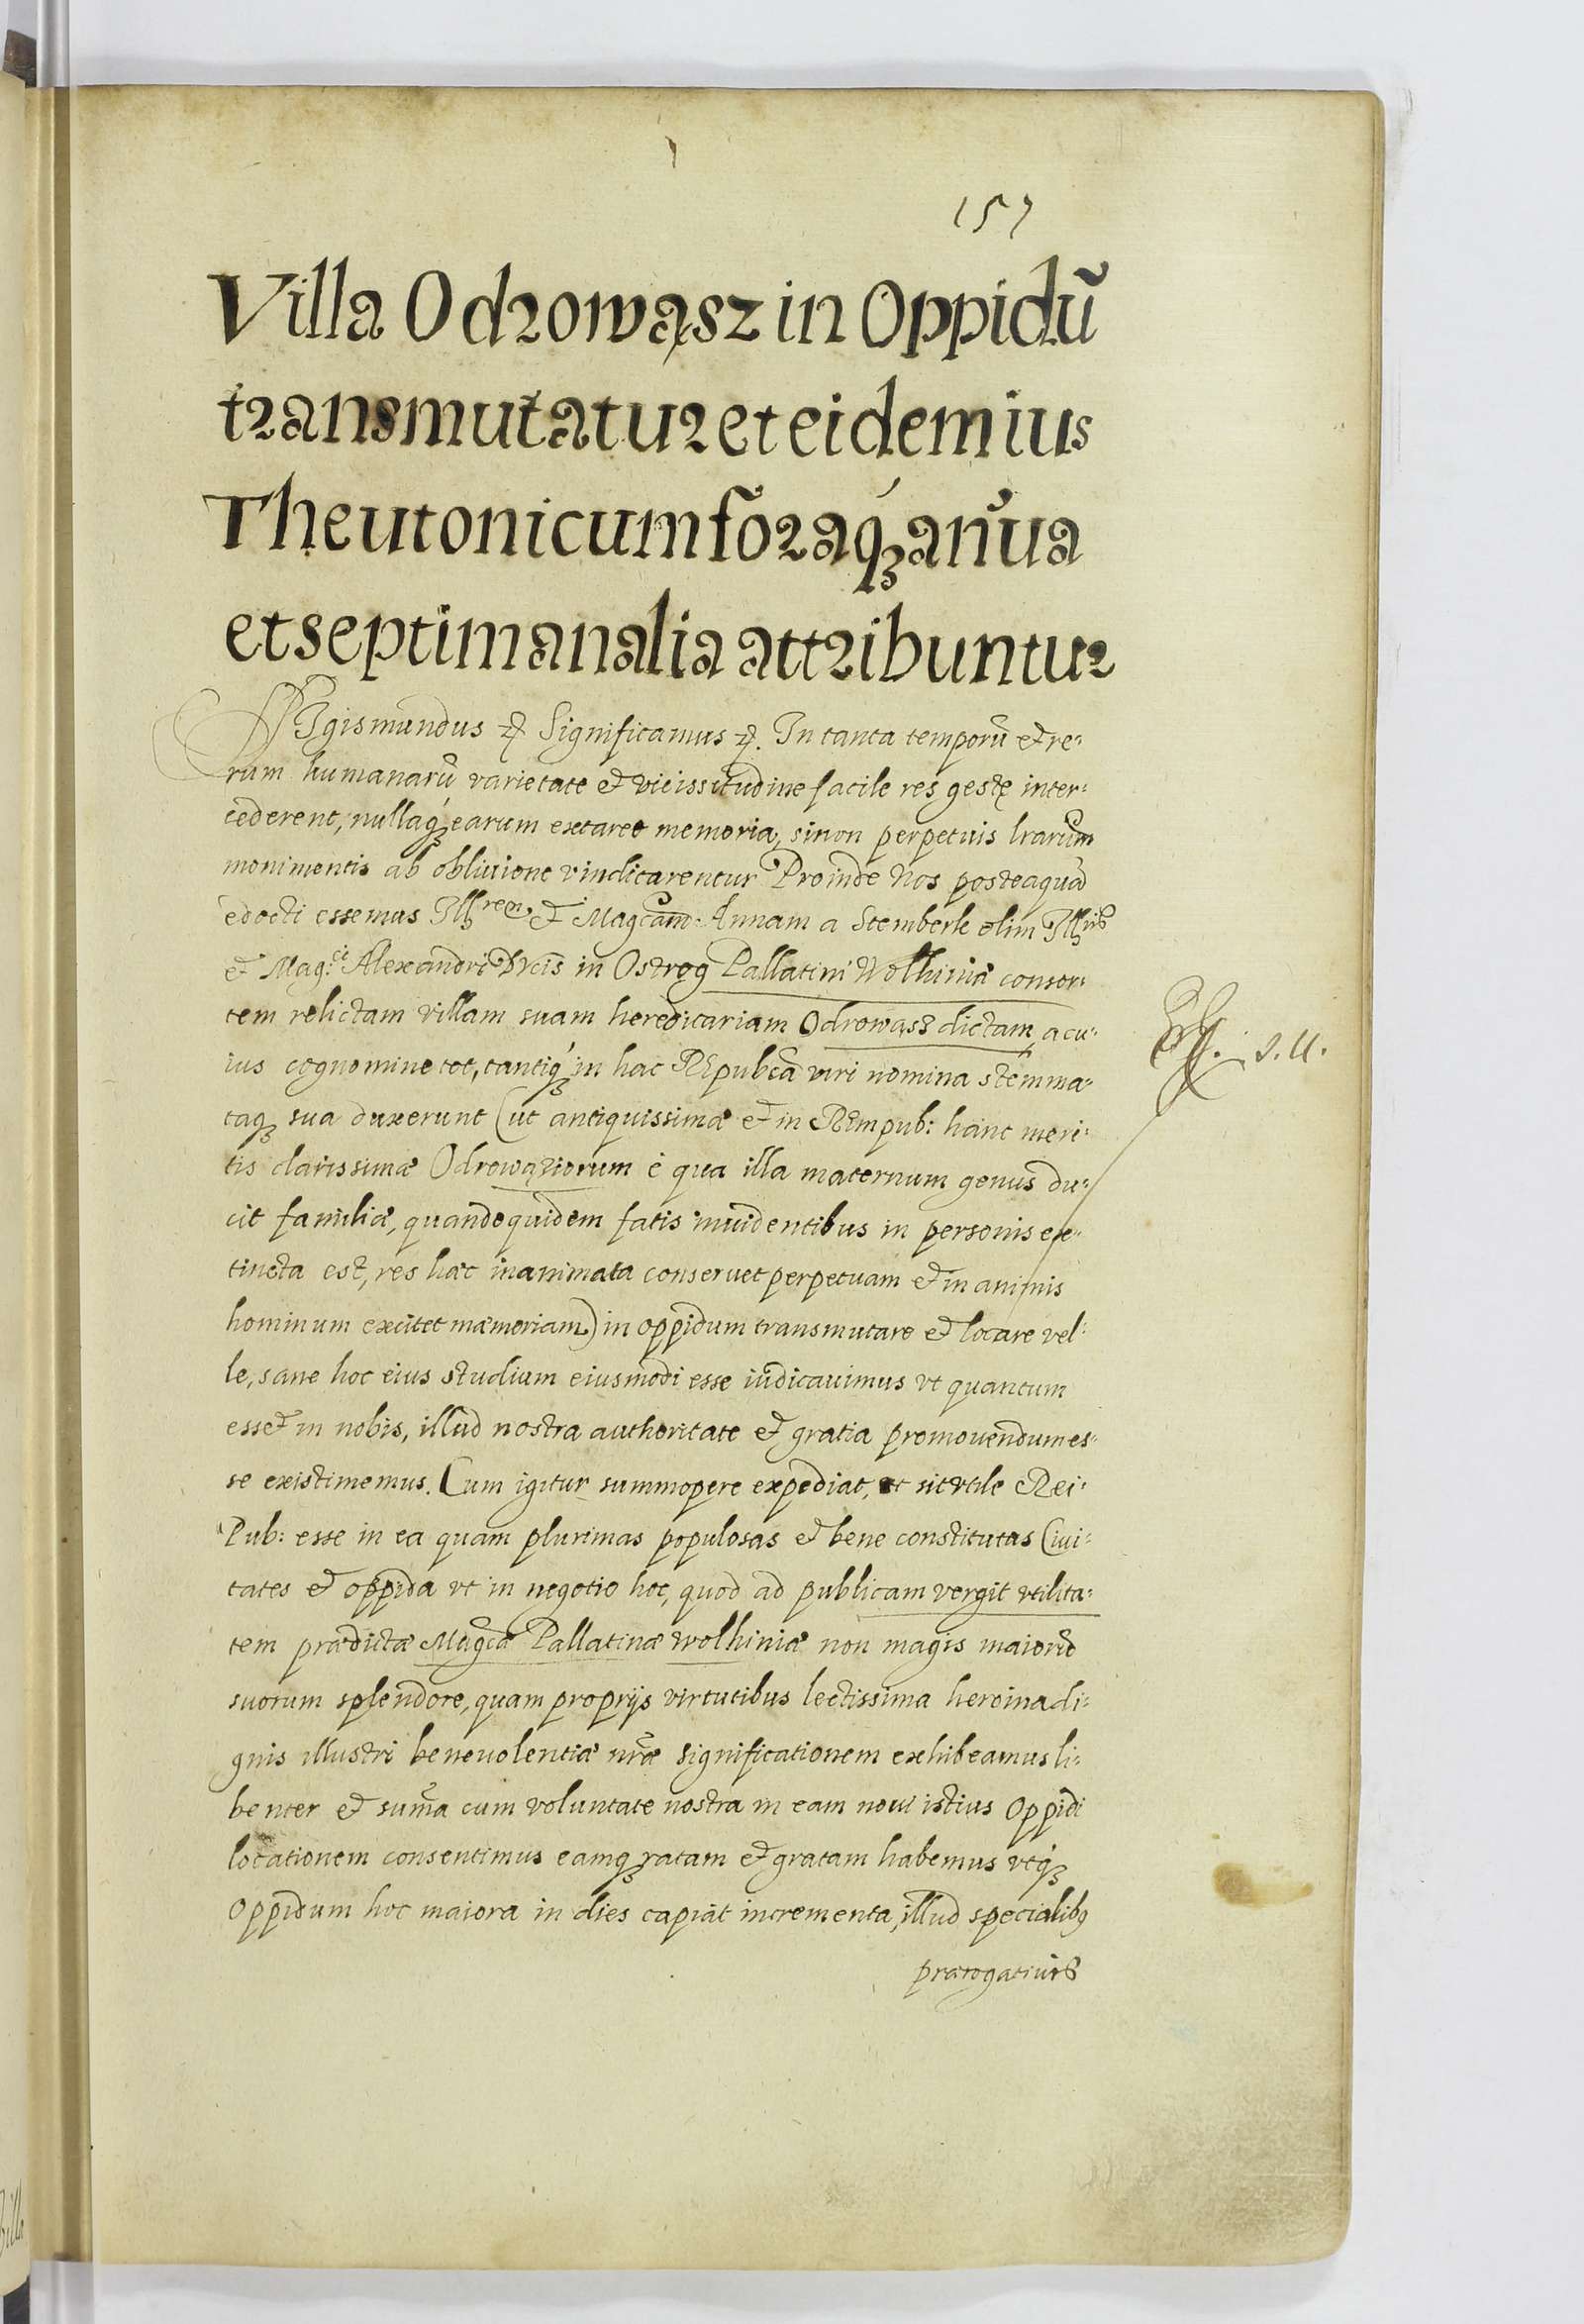 157
Villa Odrowąsz in Oppidũ
transmutatur et eidem ius
Theutonicum foraq́ꝫ an̄ua
et septimanalia attribuntur
SIgismundus ꝛꝭ Significamus ꝛꝭ. In tanta temporũ et re-
rum humanarũ varietate et vicissitudine facile res gestę inter-
cederent, nullaq́ꝫ earum extaret memoria, si non perpetuis lrarum
monimentis ab obliuione vindicarentur Proinde Nos posteaquã
edocti essemus Illrem et Magcam Annam a Stemberk olim Illris
et Mag:ci Alexandri Ducis in Ostrog Pallatini Wolhiniæ consor-
tem relictam villam suam hereditariam Odrowąsz dictam a cu-
ius cognomine tot, tantiq́ꝫ in hac REpubca viri nomina stemma-
taqꝫ sua duxerunt (ut antiquissimæ et in REmpub: hanc meri-
tis clarissimæ Odrowąziorum è qua illa maternum genus du-
cit familiæ, quandoquidem fatis inuidentibus in personis ex-
tincta est, res hæc inanimata conseruet perpetuam et in animis
hominum excitet mæmoriam) in oppidum transmutare et locare vel-
le, sane hoc eius studium eiusmodi esse iudicauimus vt quantum
esset in nobis, illud nostra authoritate et gratia promouendum es-
se existimemus. Cum igitur summopere expediat, et sit vtile Rei-
Pub: esse in ea quam plurimas populosas et bene constitutas Ciui-
tates et oppida vt in negotio hoc, quod ad publicam vergit vtilita-
tem prædictæ Magcæ Pallatinæ wolhiniæ non magis maiorũ
suorum splendore, quam proprijs virtutibus lectissima heroina di-
gnis illustri beneuolentiæ nræ significationem exhibeamus li-
benter et sum̃a cum voluntate nostra in eam noui istius Oppidi
locationem consentimus eamqꝫ ratam et gratam habemus vtq́ꝫ
Oppidum hoc maiora in dies capiat incrementa, illud specialibꝰ
prærogatiuis